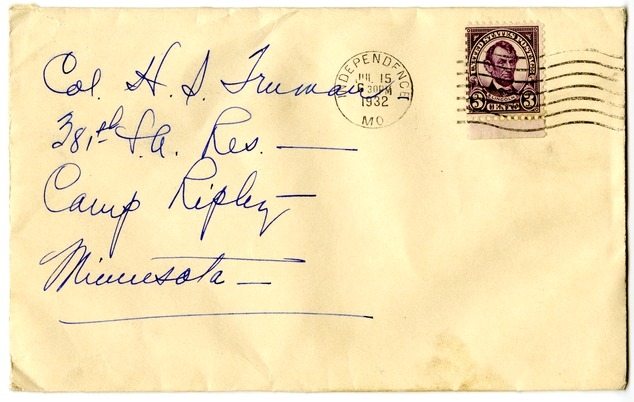 Col. H. S. Truman
381st F.A. Res. —
Camp Ripley —
Minnesota —
INDEPENDENCE
JUL 15
6 30PM
1932
MO
UNITED STATES POSTAGE
LINCOLN
3 CENTS 3